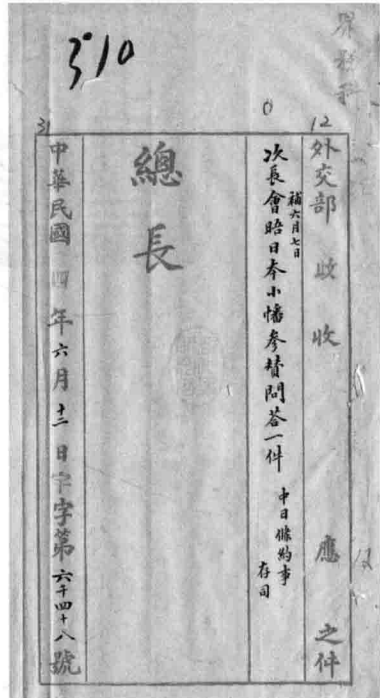 界務科
3°10
12
0
31
外交部 收 收 應 之件
補六月七日
次長會晤日本小幡參贊問答一件
中日條約事
存司
總長
中華民國 四 年 六 月 十二 日 字字第 六千四十八 號